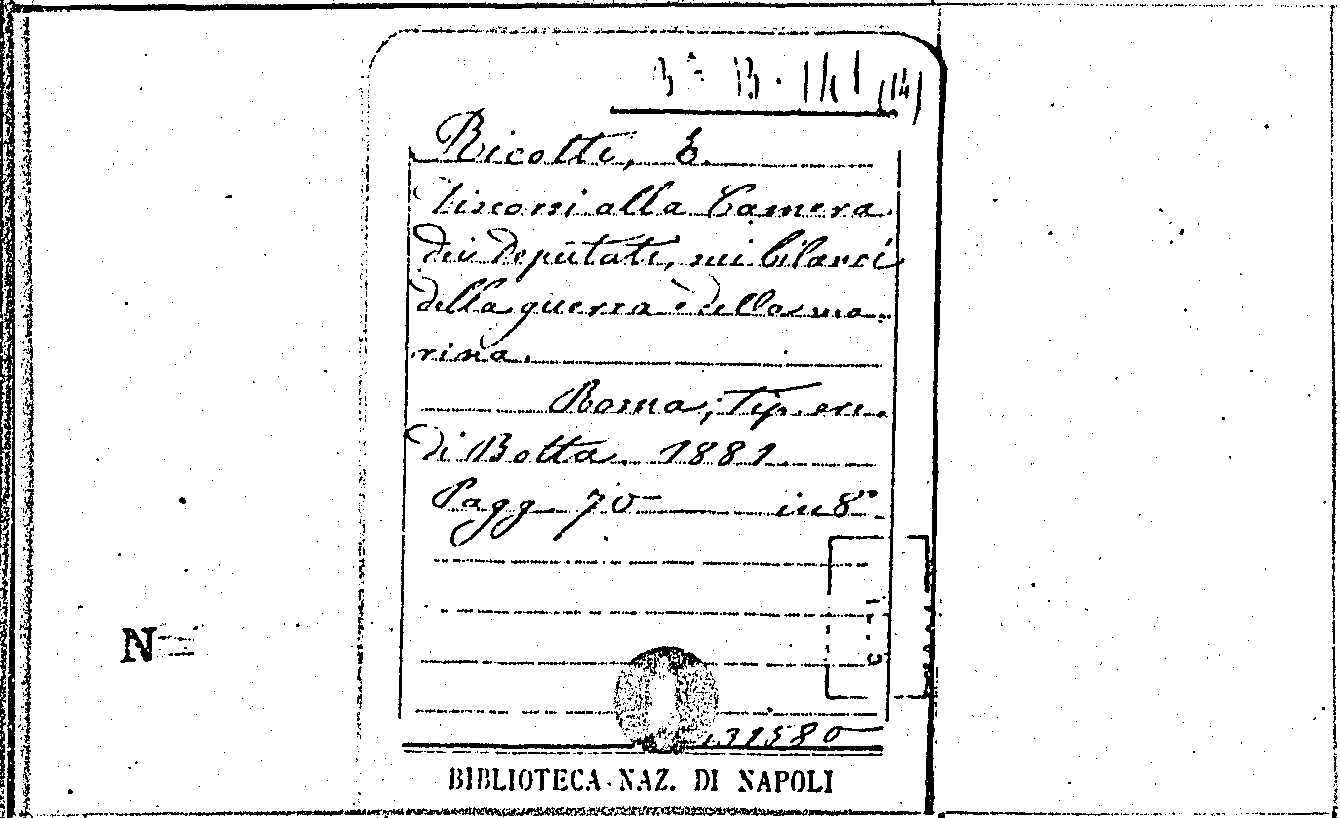 Ricotti, E.
Discorsi alla Camera
dei deputati, sui bilanci
della guerra e della ma-
rina.
Roma, tip. ere.
di Botta. 1881
Pagg. 70 in 8°
131580
N
BIBLIOTECA NAZ. DI NAPOLI